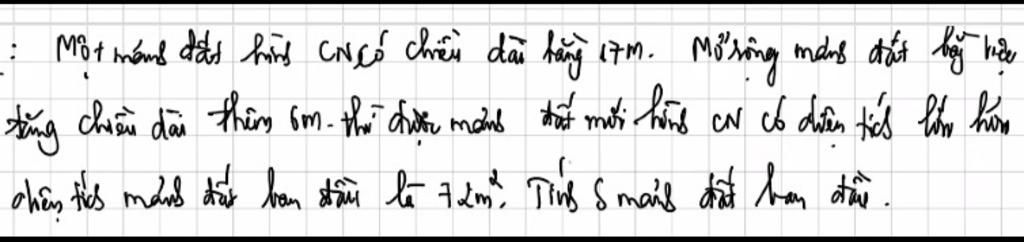 : Một mảnh đất hình CN có chiều dài bằng 17m. Mở rộng mảnh đất bằng việc
tăng chiều dài thêm 6m. thì được mảnh đất mới hình CN có diện tích lớn hơn
diện tích mảnh đất ban đầu là 72m². Tính S mảnh đất ban đầu.